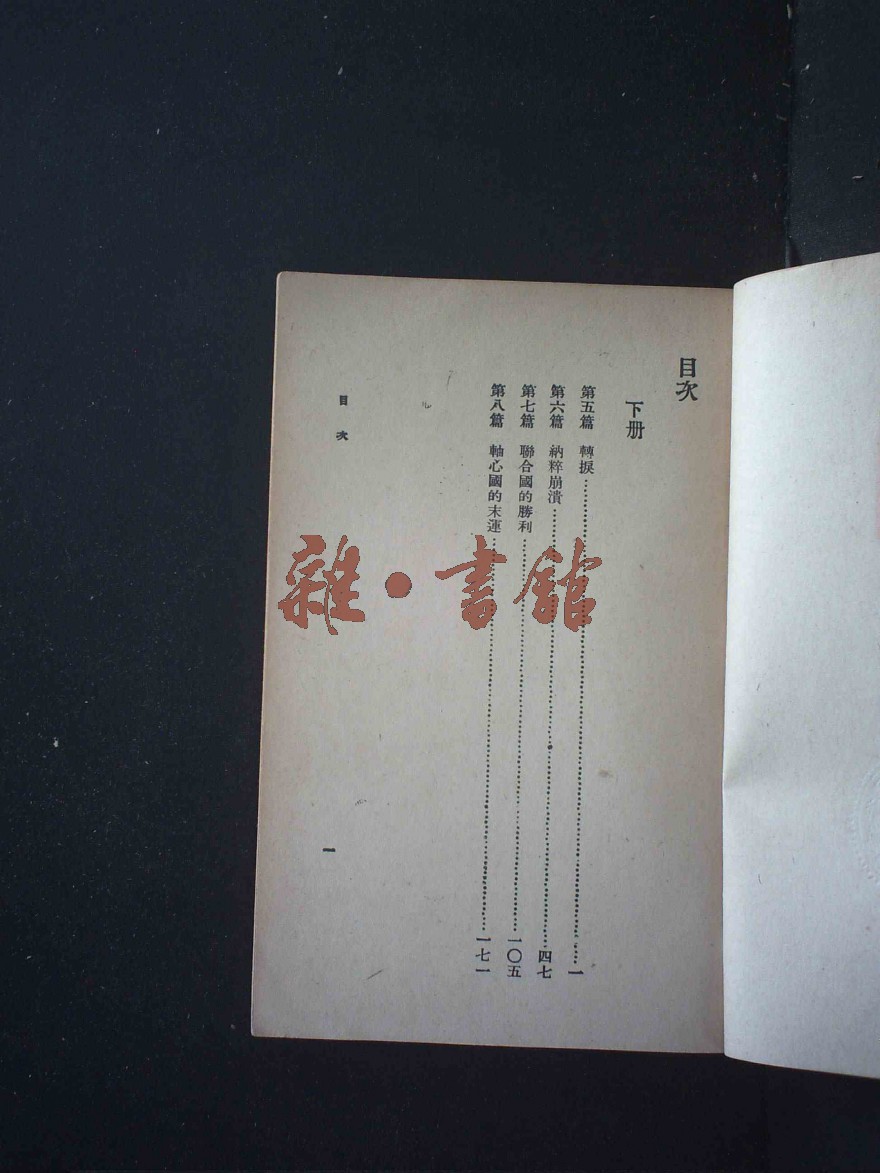 目次
下册
第五篇 轉捩……一
第六篇 納粹崩潰……四七
第七篇 聯合國的勝利……一〇五
第八篇 軸心國的末運……一七一
目次
一
雜·書館